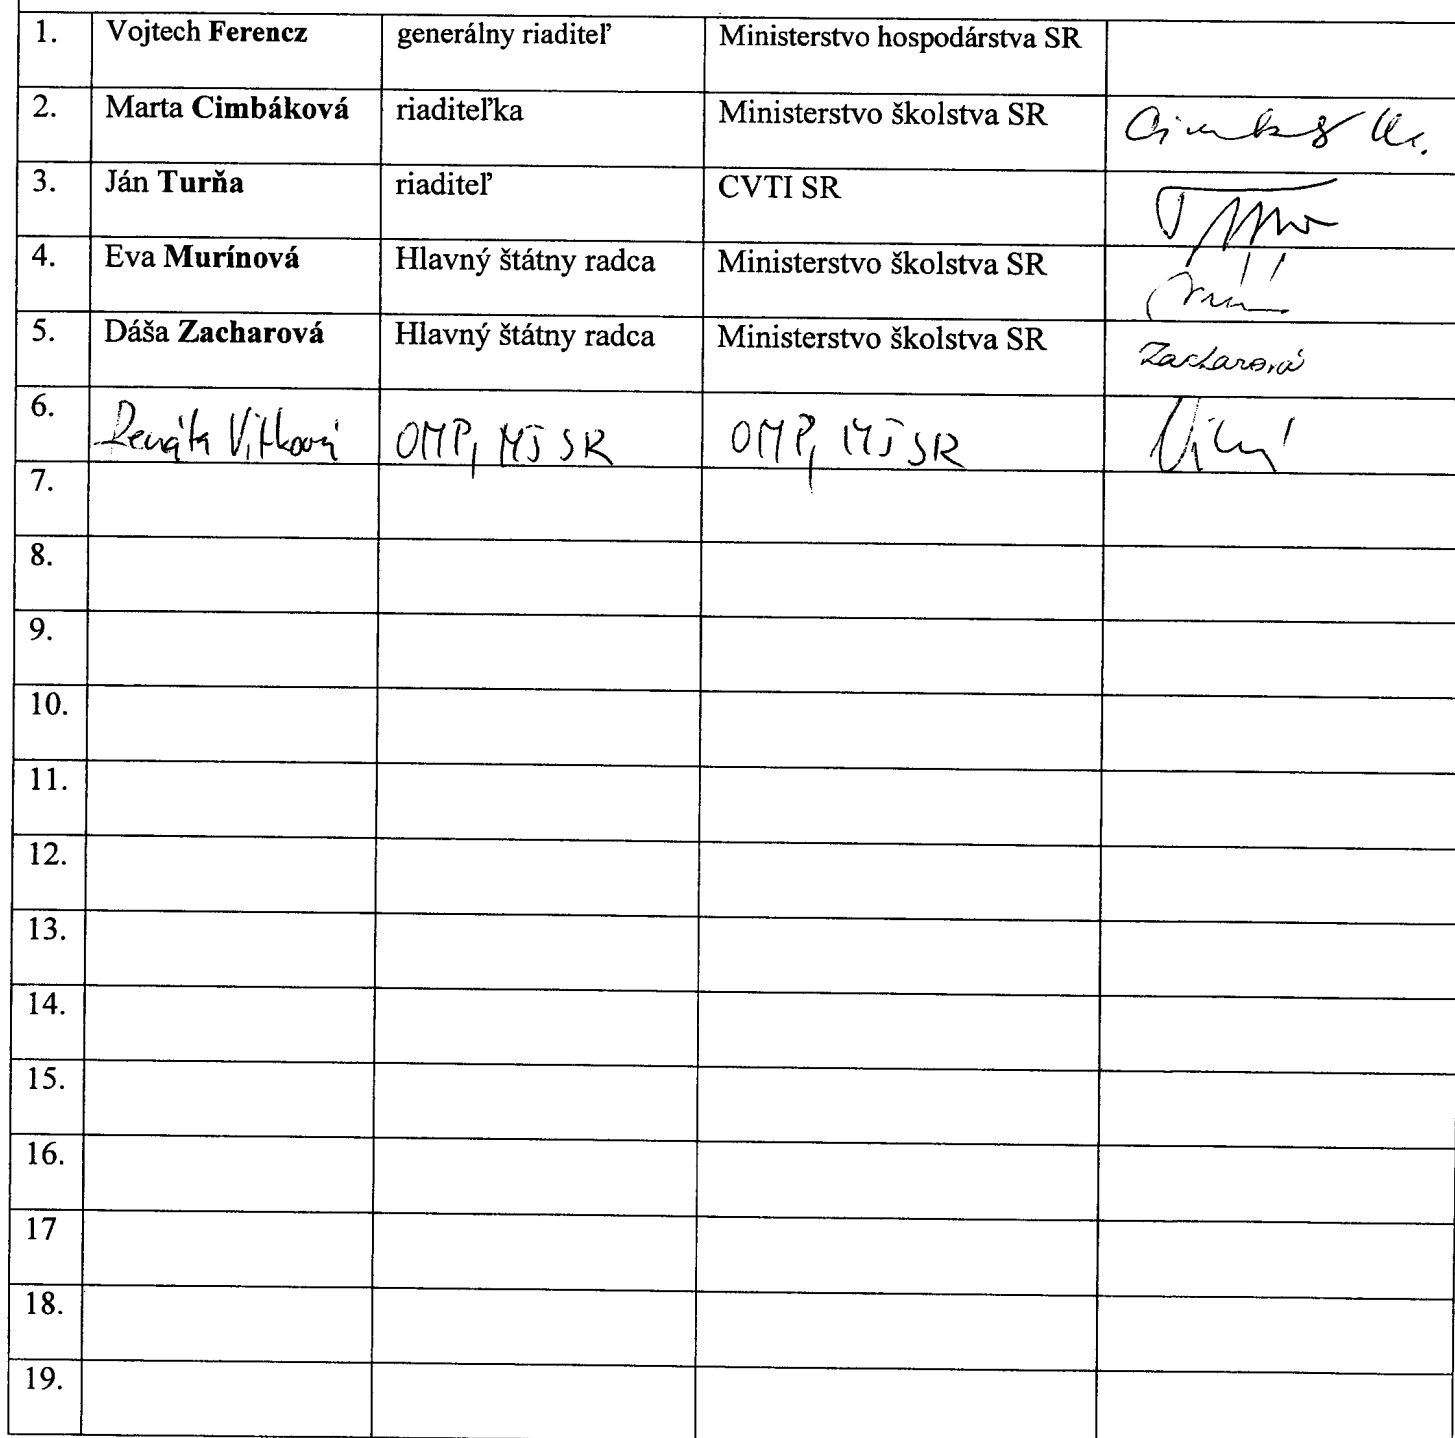 1. Vojtech Ferencz generálny riaditeľ Ministerstvo hospodárstva SR
2. Marta Cimbáková riaditeľka Ministerstvo školstva SR
3. Ján Turňa riaditeľ CVTI SR
4. Eva Murínová Hlavný štátny radca Ministerstvo školstva SR
5. Dáša Zacharová Hlavný štátny radca Ministerstvo školstva SR Zacharová
6. Renáta Vitková OMP, MŠ SR OMP, MŠ SR
7.
8.
9.
10.
11.
12.
13.
14.
15.
16.
17
18.
19.